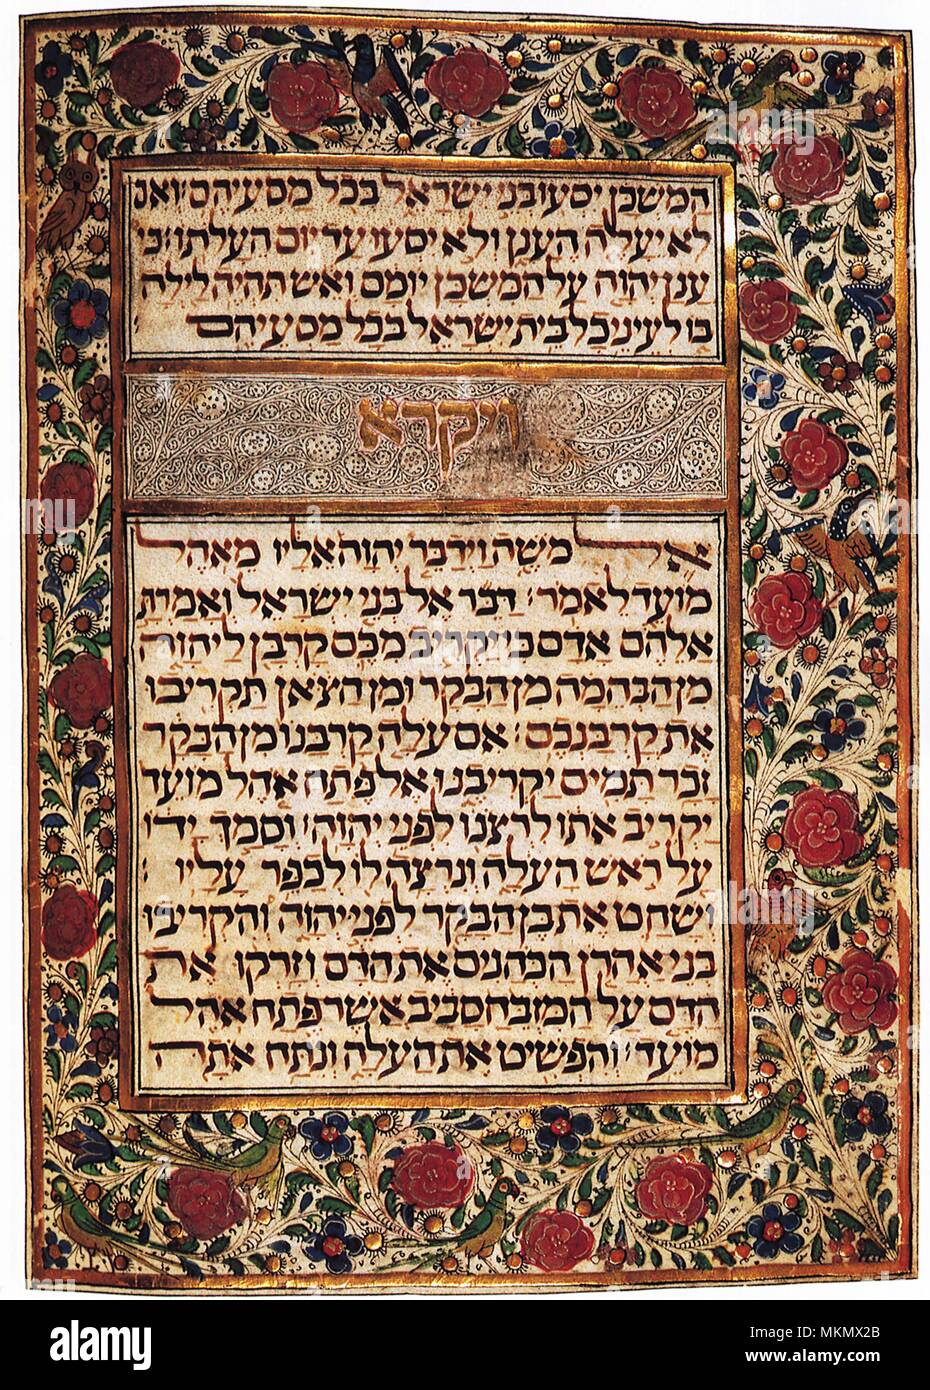 המשכן יסעו בני ישראל בכל מסעיהם ואם
לא יעלה הענן ולא יסעו עד יום העלתו כי
ענן יהוה על המשכן יומם ואש תהיה לילה
בו לעיני כל בית ישראל בכל מסעיהם
ויקרא
אל משה וידבר יהוה אליו מאהל
מועד לאמר׃ דבר אל בני ישראל ואמרת
אלהם אדם כי יקריב מכם קרבן ליהוה
מן הבהמה מן הבקר ומן הצאן תקריבו
את קרבנכם׃ אם עלה קרבנו מן הבקר
זכר תמים יקריבנו אל פתח אהל מועד
יקריב אתו לרצנו לפני יהוה׃ וסמך ידו
על ראש העלה ונרצה לו לכפר עליו׃
ושחט את בן הבקר לפני יהוה והקריבו
בני אהרן הכהנים את הדם וזרקו את
הדם על המזבח סביב אשר פתח אהל
מועד׃ והפשיט את העלה ונתח אתה
alamy
Image ID: MKMX2B
www.alamy.com